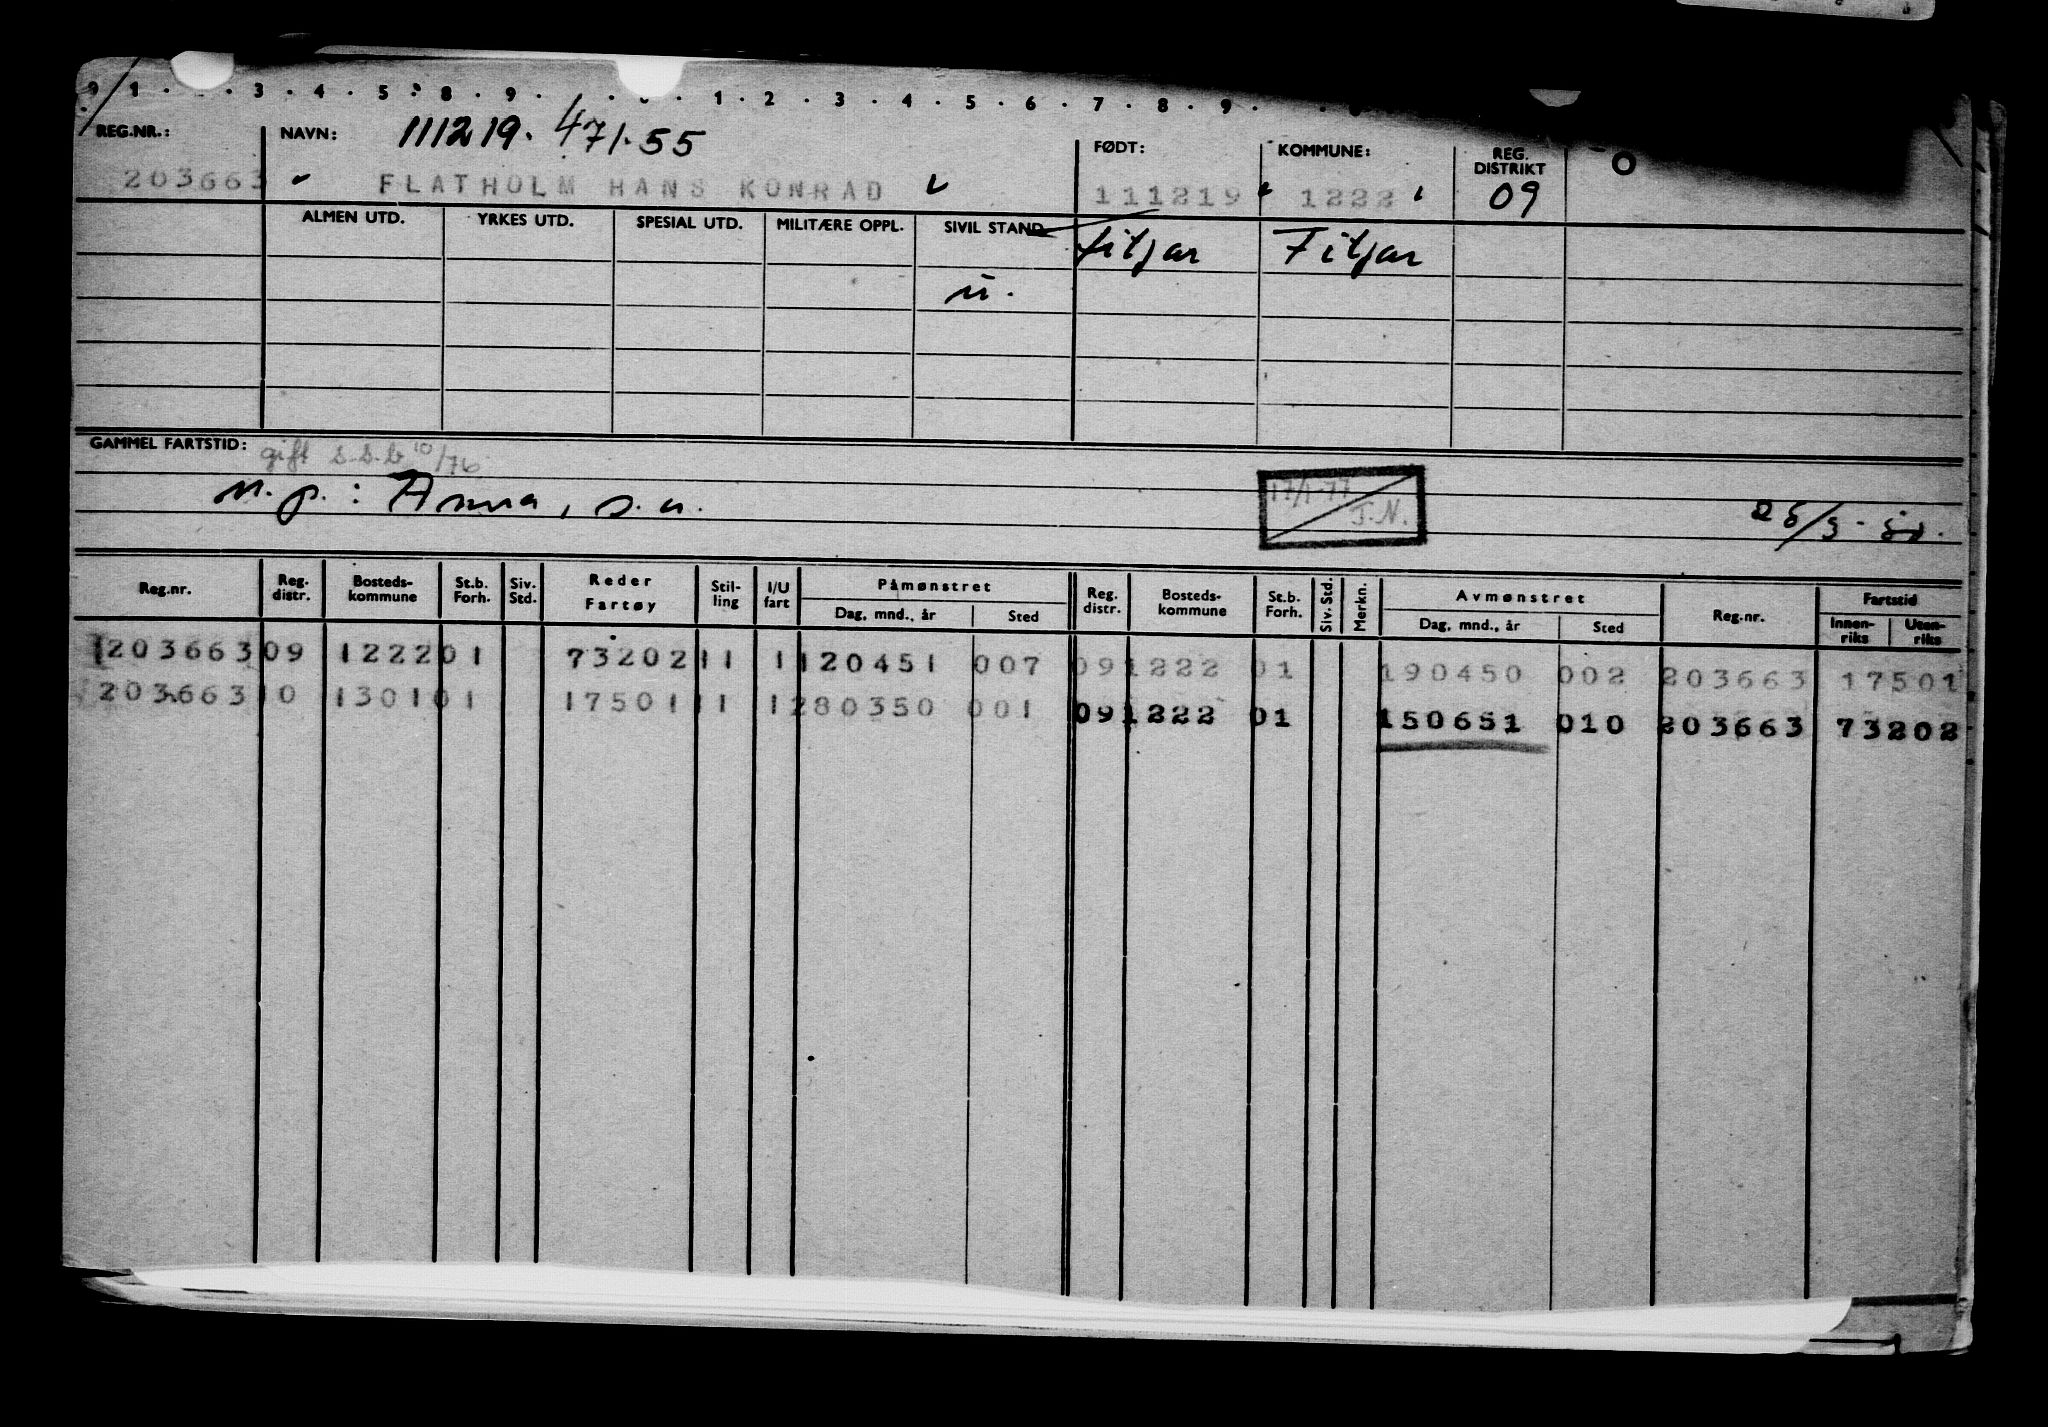 9 1 · · 3 · 4 · 5 · 8 · 9 · · 0 · 1 · 2 · 3 · 4 · 5 · 6 · 7 · 8 · 9 ·
REG.NR.: NAVN: 111219. 471.55 FØDT: KOMMUNE: REG. DISTRIKT
203663 FLATHOLM HANS KONRAD 111219 1222 09
ALMEN UTD. YRKES UTD. SPESIAL UTD. MILITÆRE OPPL. SIVIL STAND Fitjar Fitjar
u.
GAMMEL FARTSTID: gift s.s.b 10/76
n.p.: Anna, s.a. 17/1-77 J.N.
Reg.nr. Reg. distr. Bosteds-kommune St.b. Forh. Siv. Std. Reder Fartøy Stil-ling I/U fart Påmønstret Dag, mnd., år Sted Reg. distr. Bosteds-kommune St.b. Forh. Siv. Std. Merkn. Avmønstret Dag, mnd., år Sted Reg.nr. Fartstid Innen-riks Uten-riks
203663 09 1222 01 73202 11 1 120451 007 09 1222 01 190450 002 203663 17501
203663 10 1301 01 17501 11 1 280350 001 09 1222 01 150651 010 203663 73202